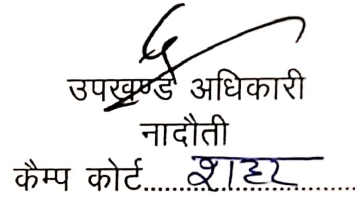 उपखण्ड अधिकारी
नादौती
कैम्प कोर्ट.....शहर.....